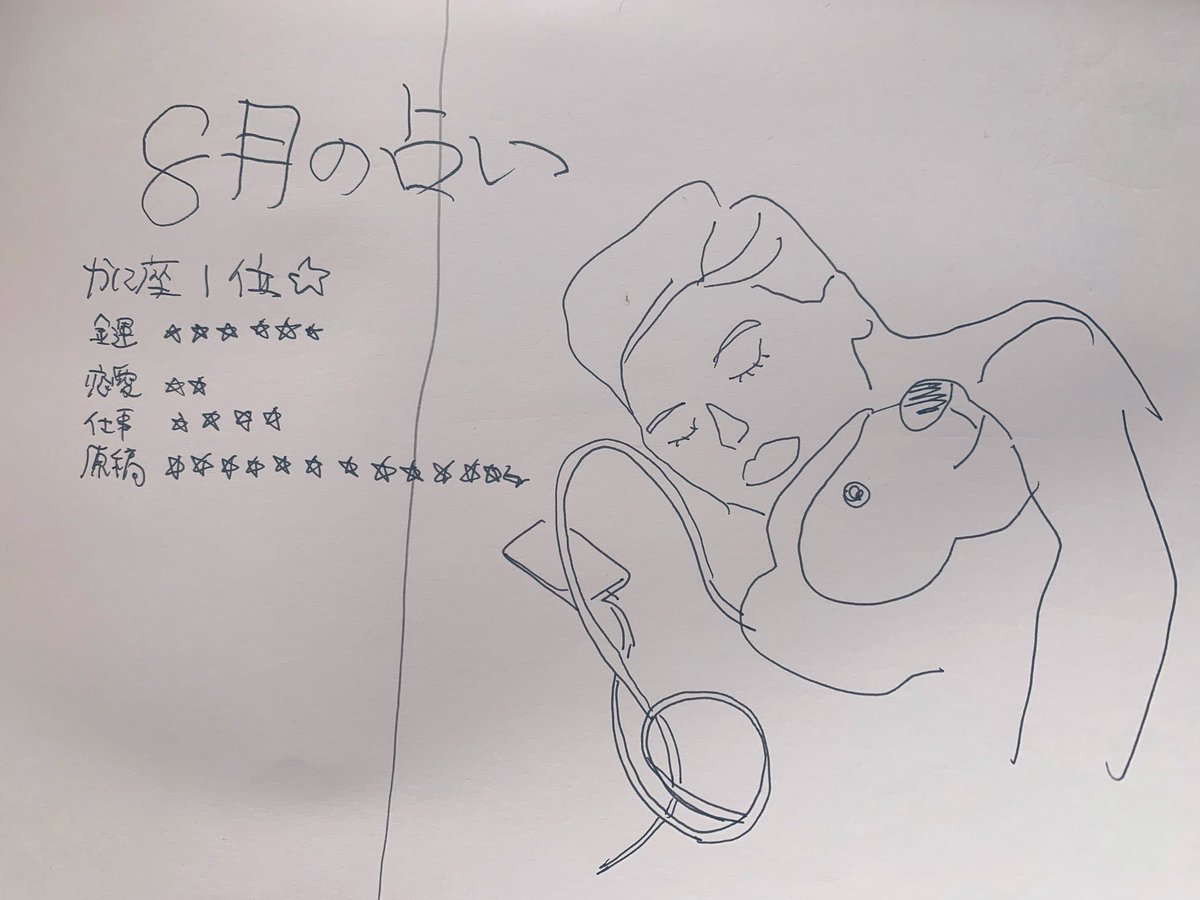 8月の占い
かに座1位☆
金運 ☆☆☆☆☆☆
恋愛 ☆☆
仕事 ☆☆☆☆
原稿 ☆☆☆☆☆☆☆☆☆☆☆☆☆